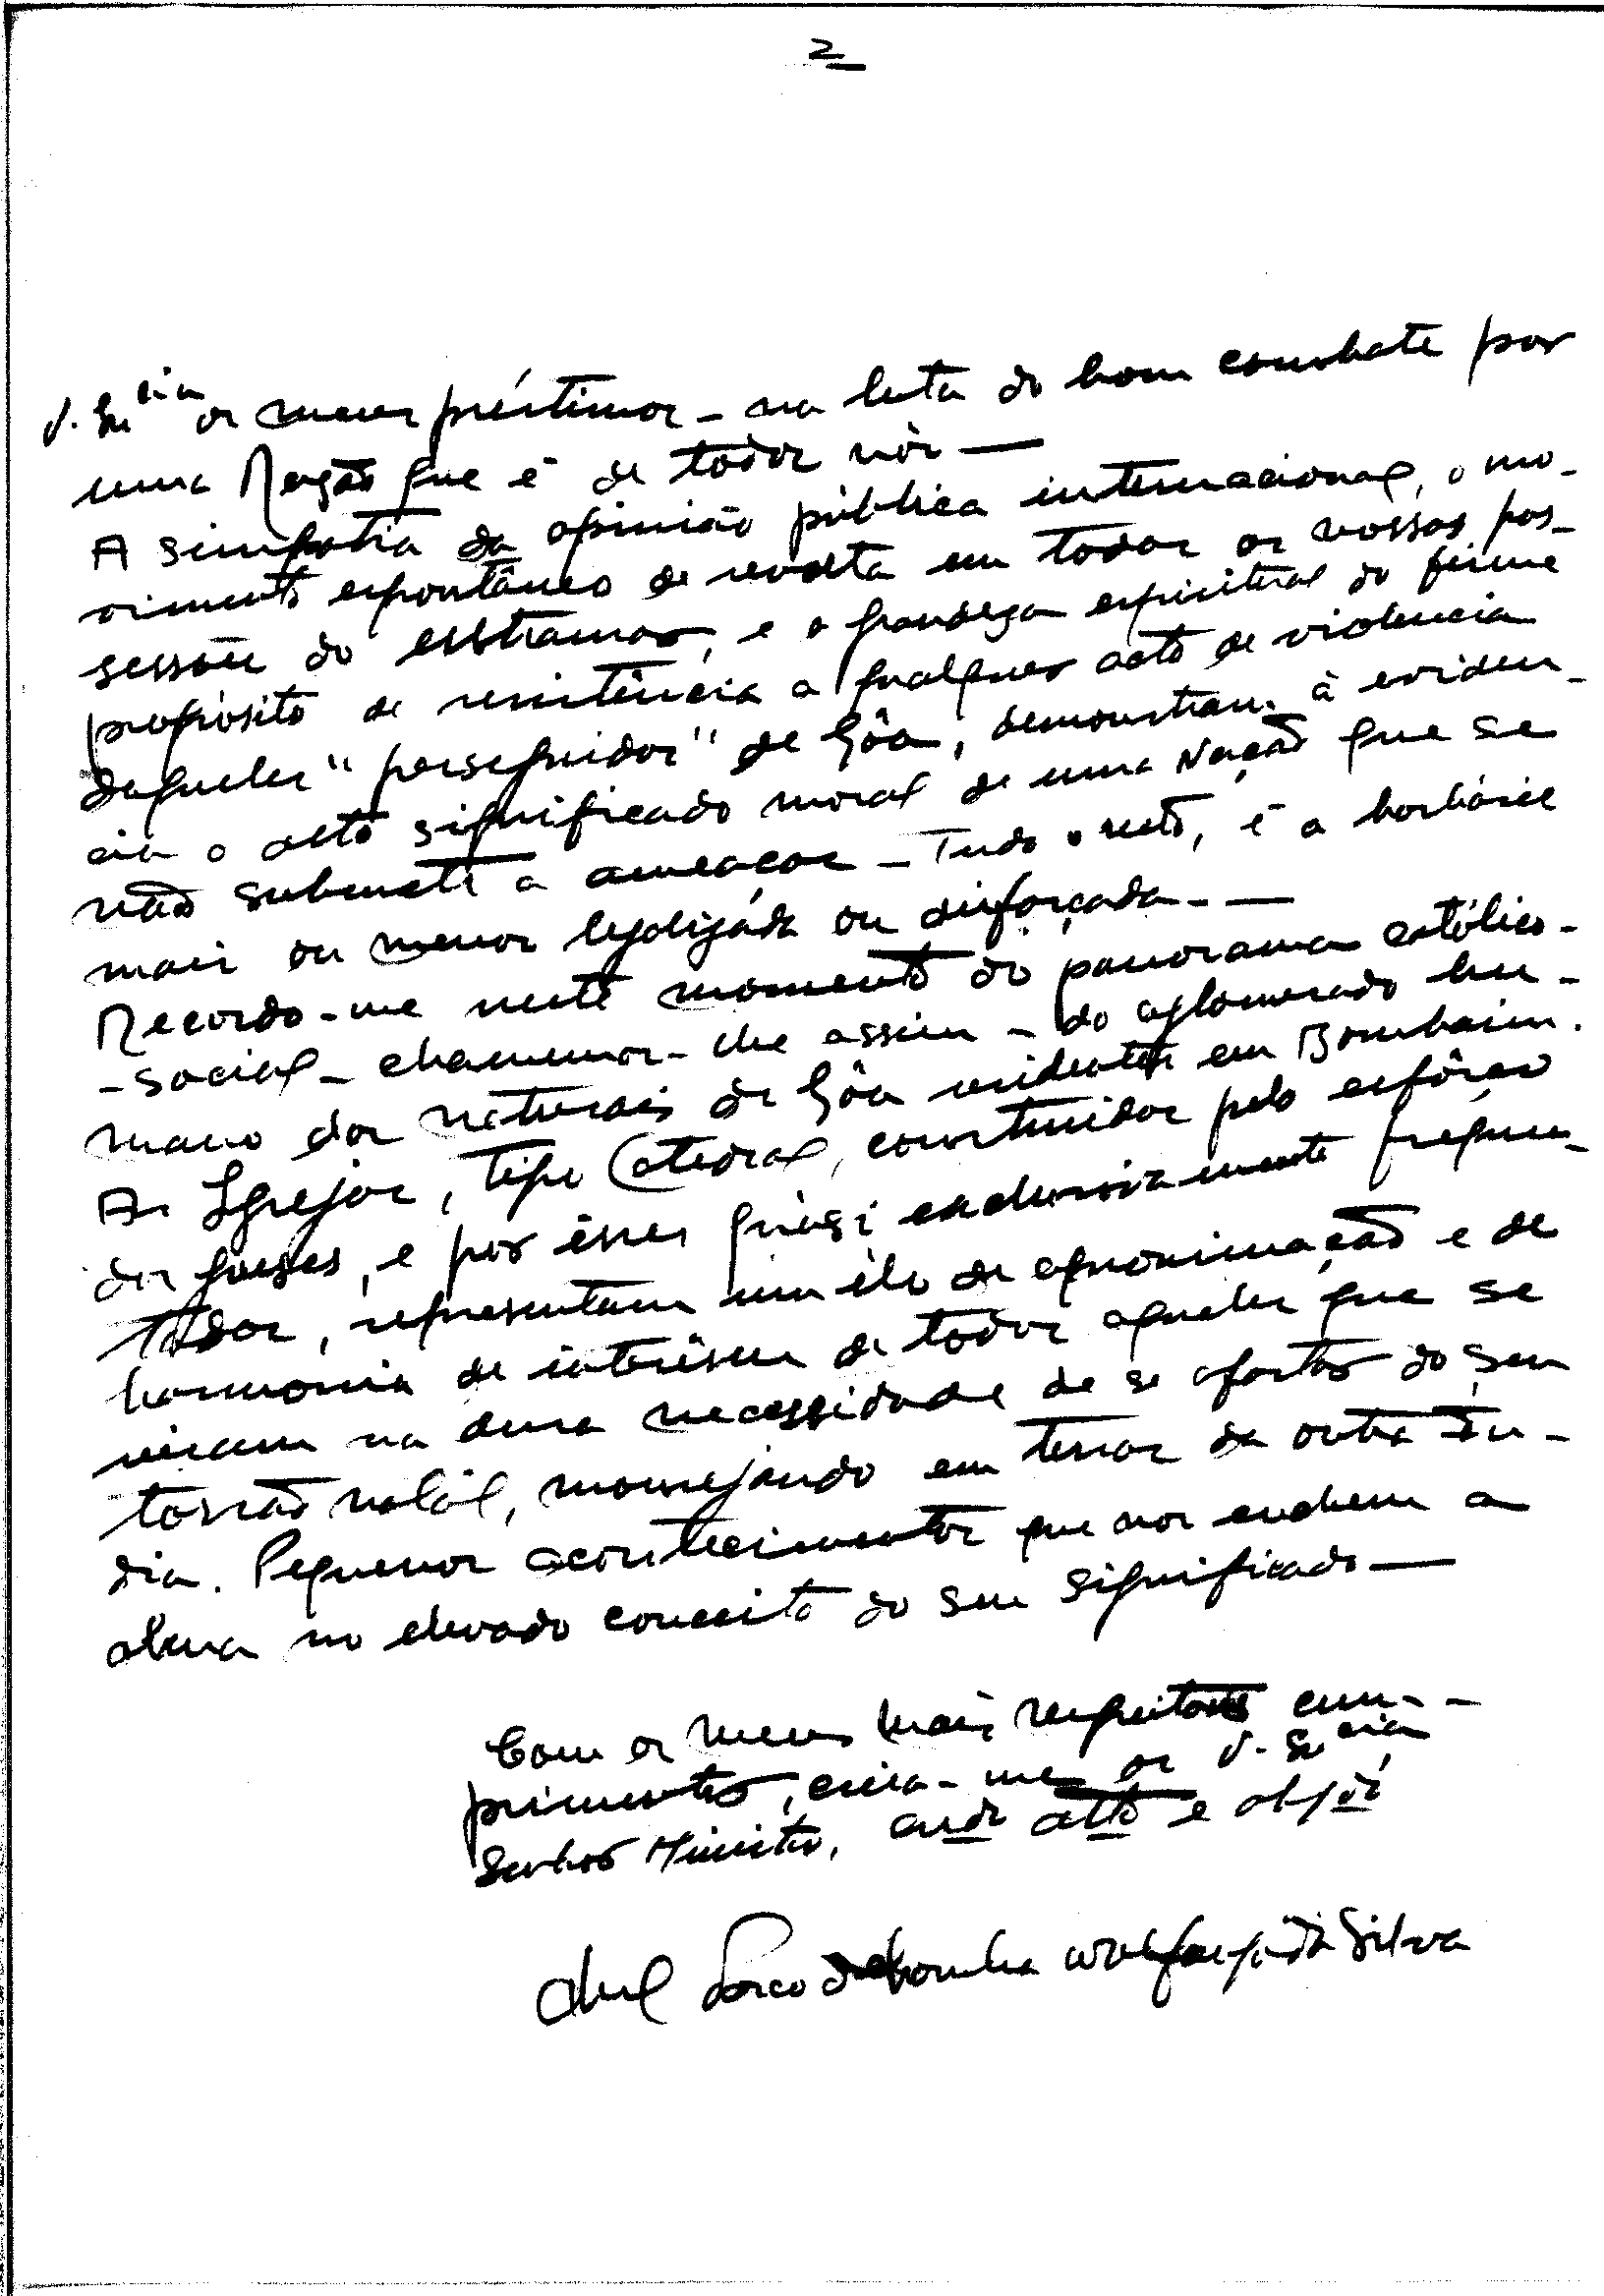 2
V. Ex.cia os meus préstimos - na luta do bom combate por
uma Nação que é de todos nós —
A simpatia da opinião pública internacional, o mo-
vimento espontâneo de revolta em todas as vossas pos-
sessões do ultramar, e a grandeza espiritual do firme
propósito de resistência a qualquer acto de violencia
daqueles "perseguidor" de Gôa, demonstram à eviden-
cia o alto significado moral de uma Nação que se
não submete a ameaças - Tudo o resto, é a barbárie
mais ou menos legalizada ou disfarçada - —
Recordo-me neste momento do panorama católico-
-social - chamemos-lhe assim - do aglomerado hu-
mano dos naturais de Gôa residentes em Bombaim.
As Igrejas, tipo Catedral, construidas pelo esfôrço
dos goeses, e por êsses quási exclusivamente frequen-
tadas, representam um élo de aproximação e de
harmonia de interêsses de todos aqueles que se
viram na dura necessidade de se afastar do seu
torrão natál, mourejando em terras da outra In-
dia. Pequenos acontecimentos que nos enchem a
alma no elevado conceito do seu significado —
Com os meus mais respeitosos cum-
primentos, creia-me de V. Ex.cia
Senhor Ministro, atto e obg.do
da Silva